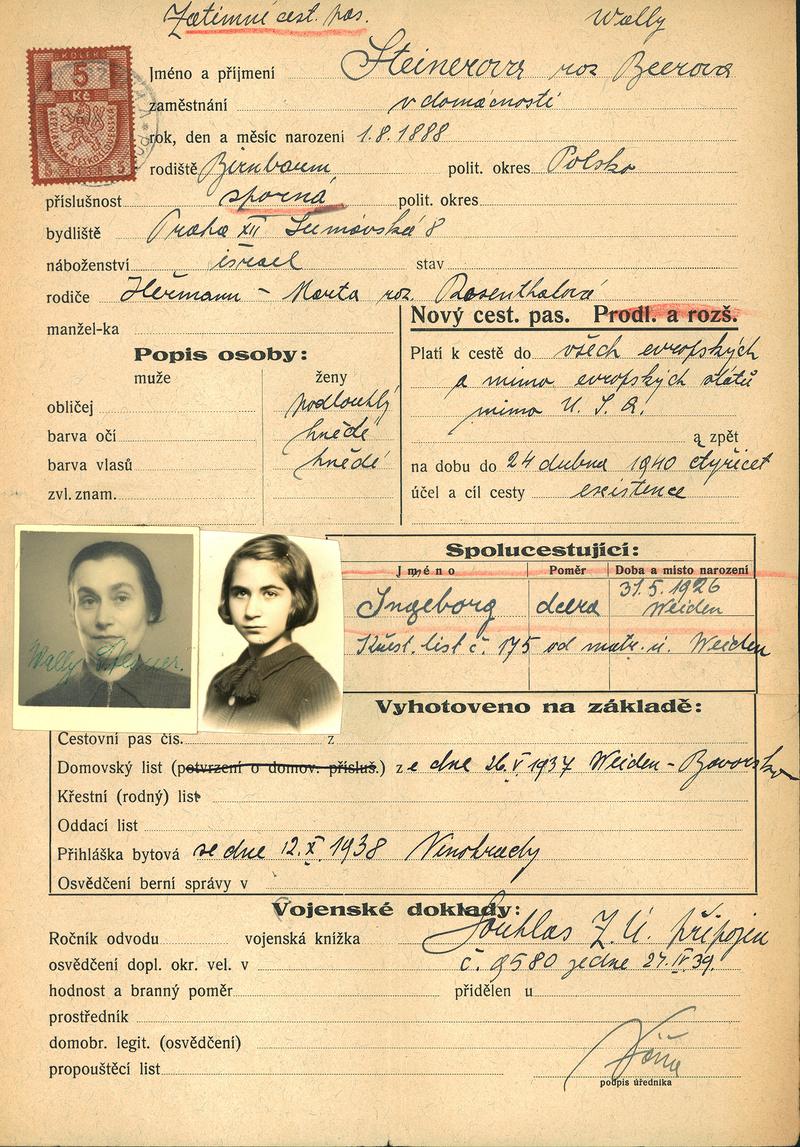 Zatímní cest. pas. Wally
KOLEK
5
Kč
REPUBLIKA ČESKOSLOVENSKÁ
Jméno a příjmení Steinerova roz Beerova
zaměstnání v domácnosti
rok, den a měsíc narození 1.8.1888
rodiště Birnbaum polit. okres Polsko
příslušnost sporná polit. okres
bydliště Praha XII Šumavská 8
náboženství israel stav
rodiče Heřmann - Marta roz. Rosenthalová
manžel-ka
Nový cest. pas. Prodl. a rozš.
Popis osoby:
muže ženy
obličej podlouhlý
barva očí hnědé
barva vlasů hnědé
zvl. znam.
Platí k cestě do všech evropských
a mimo evropských států
mimo U. S. A.
a zpět
na dobu do 24 dubna 1940 čtyřicet
účel a cíl cesty existence
Wally Steiner.
Spolucestující:
Jméno Poměr Doba a místo narození
Ingeborg dcera 31.5.1926
Weiden
Křest. list č. 175 od matr. ú. Weiden
Vyhotoveno na základě:
Cestovní pas čís. z
Domovský list (potvrzení o domov. přísluš.) z e dne 26.V.1937 Weiden - Bavorsko
Křestní (rodný) list
Oddací list
Přihláška bytová ze dne 12.X.1938 Vinohrady
Osvědčení berní správy v
Vojenské doklady:
Souhlas Z. Ú. připojen
Ročník odvodu vojenská knížka
osvědčení dopl. okr. vel. v č. 9580 ze dne 27.IV.39.
hodnost a branný poměr přidělen u
prostředník
domobr. legit. (osvědčení)
propouštěcí list
podpis úředníka